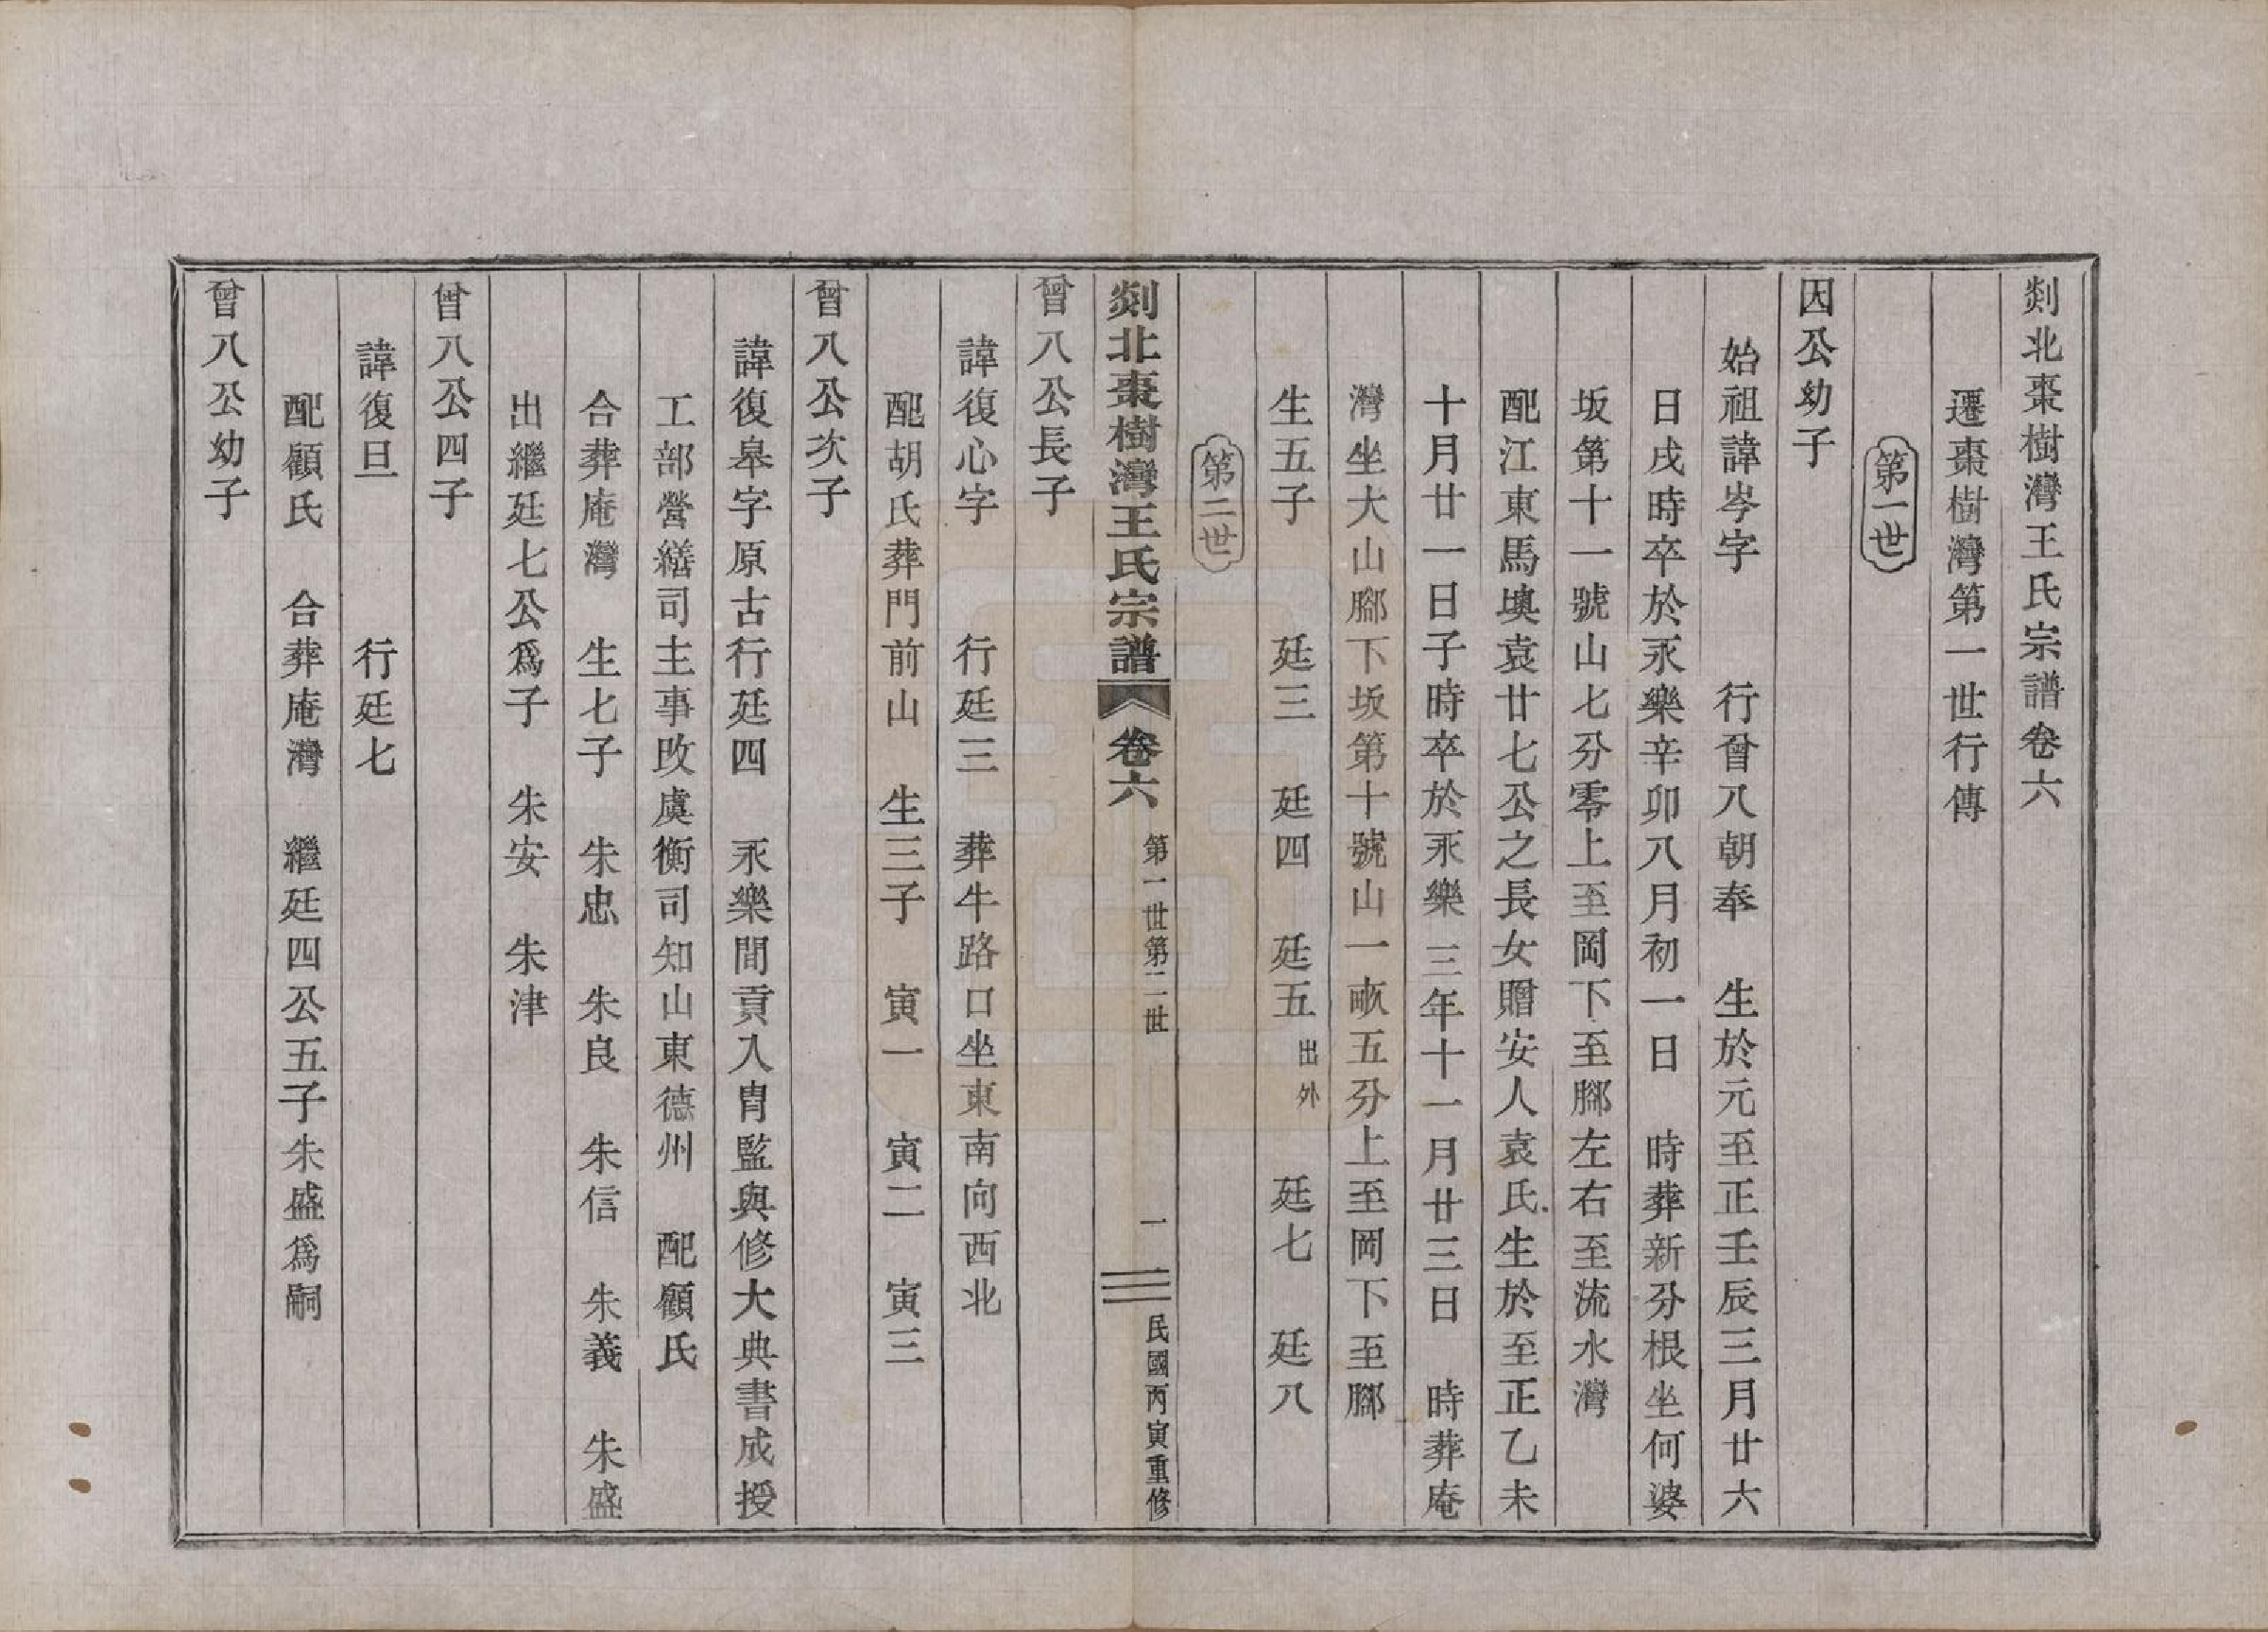 剡北棗樹灣王氏宗譜卷六
遷棗樹灣第一世行傳
第一世
因公幼子
始祖諱岑字 行曾八朝奉 生於元至正壬辰三月廿六
日戌時卒於永樂辛卯八月初一日 時葬新分根坐何婆
坂第十一號山七分零上至岡下至腳左右至流水灣
配江東馬墺袁廿七公之長女贈安人袁氏生於至正乙未
十月廿一日子時卒於永樂三年十一月廿三日 時葬庵
灣坐大山腳下坂第十號山一畝五分上至岡下至腳
生五子 廷三 廷四 廷五出外 廷七 廷八
第二世
剡北棗樹灣王氏宗譜 卷六 第一世第二世 一 民國丙寅重修
曾八公長子
諱復心字 行廷三 葬牛路口坐東南向西北
配胡氏葬門前山 生三子 寅一 寅二 寅三
曾八公次子
諱復皋字原古行廷四 永樂間貢入胄監與修大典書成授
工部營繕司主事改虞衡司知山東德州 配顧氏
合葬庵灣 生七子 朱忠 朱良 朱信 朱義 朱盛
出繼廷七公爲子 朱安 朱津
曾八公四子
諱復旦 行廷七
配顧氏 合葬庵灣 繼廷四公五子朱盛爲嗣
曾八公幼子